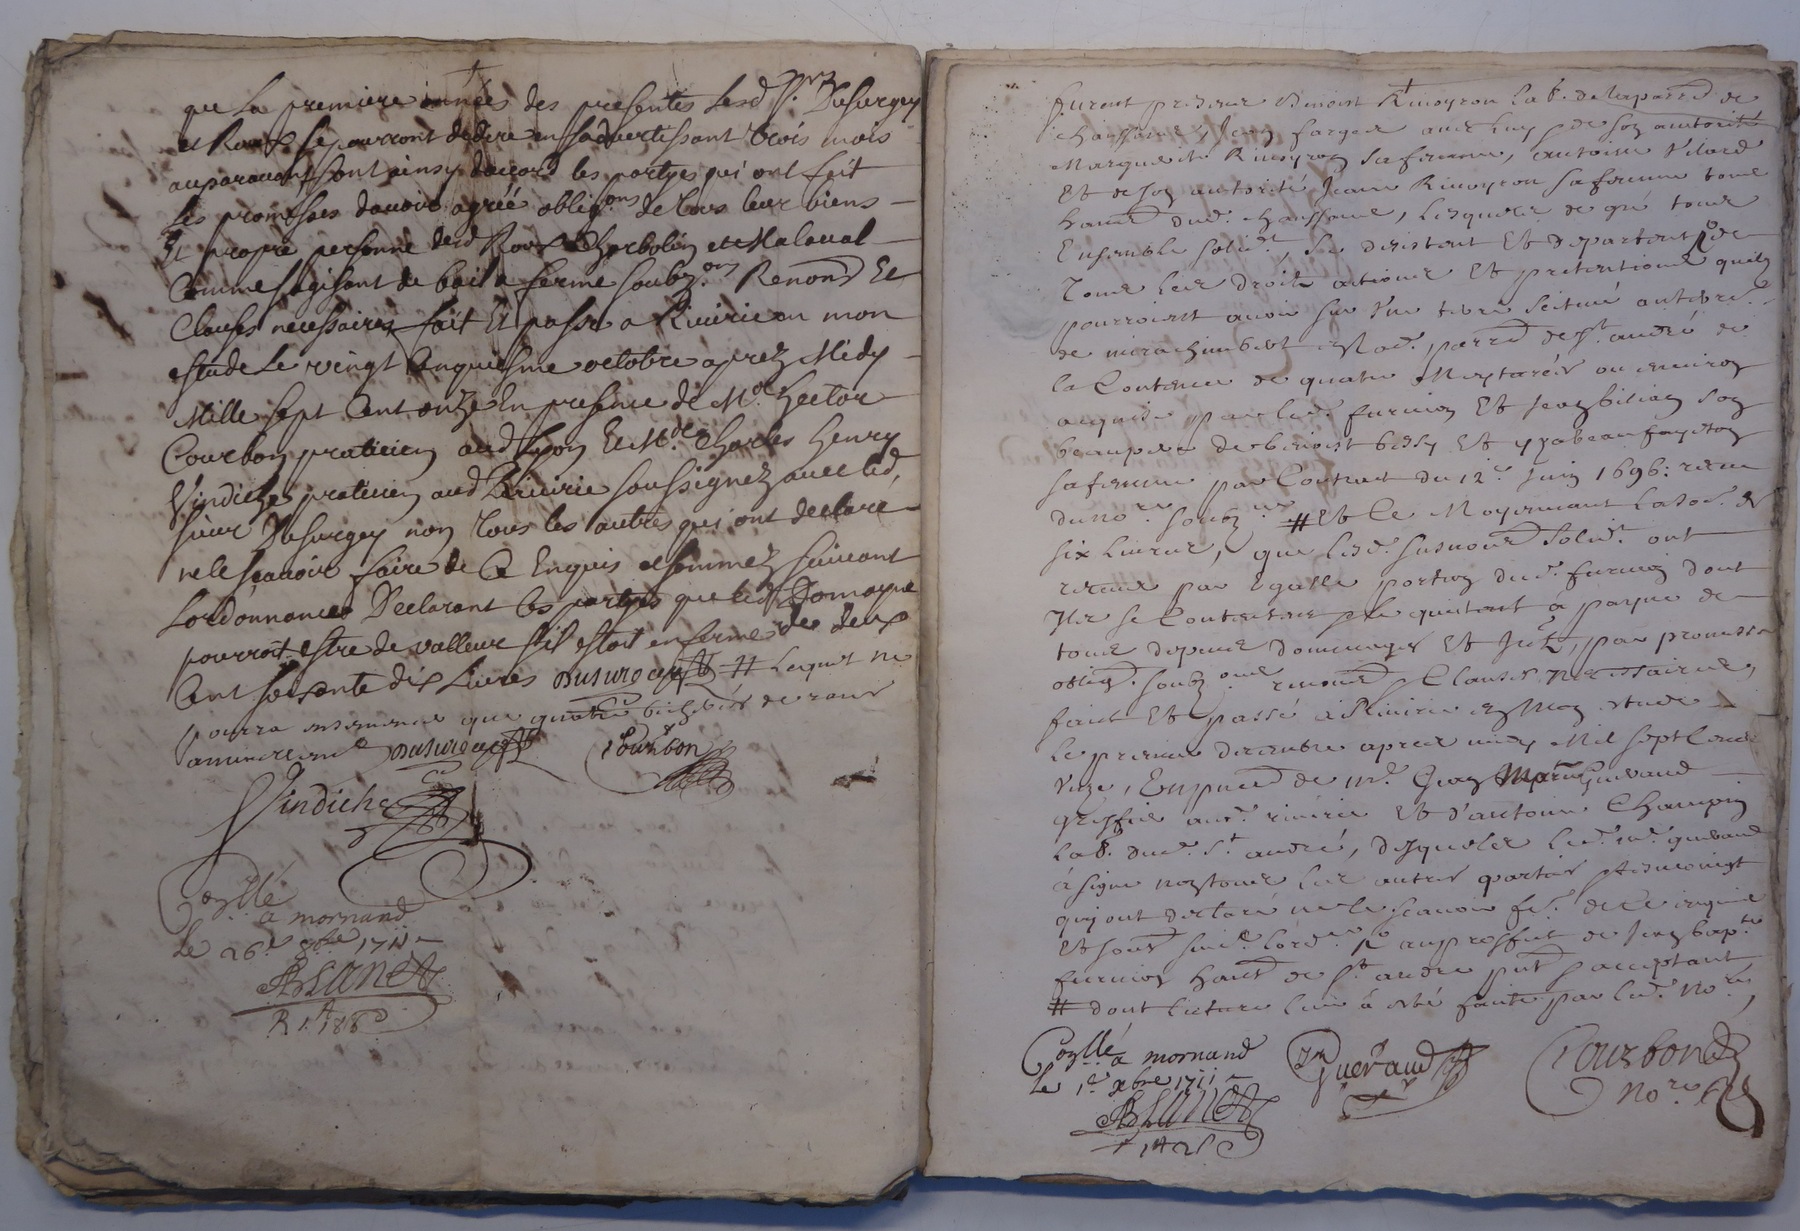 que la premiere année des presentes lesd Srs. Dusurgey
et Roux se pourront dedire en sadvertissant trois mois
auparavant sont ainsy daccord les partyes qui ont fait
les promesses davoir agréé obligons de tous leur biens
Et propre personne desd Roux Charbolin et Malaval
Comme sagisant de bail a ferme soubzons Renond Et
Clauses necessaires fait Et passé a Riuirie en mon
estude Le vingt Cinquiesme octobre aprez Midy
Mille sept Cent onze En presence de Me. hector
Courbon praticien aud Lyon Et Me. Charles henry
Vindiche praticien aud Riuirie soussignez auec led.
sieur Dusurgey non tous les autres qui ont declaré
ne le scauoir faire de Ce Enquis et sommez suiuant
Lordonnance Declarant les partyes que led Domayne
pourroit estre de valleur s'il estoit en ferme de deux
Cent soixante dix Liures Dusurgey # Lequel ne
pourra ensemencer que quatre bichées de raue
annuellemt Dusurgey Courbon
Vindiche
Conllé
a mornand
Le 26e 8bre 1711
BLANET
furent presens Benoist Riuoyron lab. de la parre de
chaussane, Jean farges auec luy de son autorité
Marguerite Riuoyron sa femme, antoine Vilard
Et de son autorité Jeanne Riuoyron sa femme tous
habitt dud. chaussane, lesquels de gré tous
Ensemble solidt, se desistent Et departent de
Tous les droits actions Et pretentions quils
pourroient auoir sur une terre scituée au terre.
de mirachimbert en lad. parre de st. andré de
la Contenue de quatre Meytarées ou enuiron
acquise par led. furnion Et Jean bilian son
beaupere de benoist bessy Et yzabeau fayeton
sa femme par Contract du 12e. Juin 1696: receu
du nore. soubz. # Et Ce Moyennant la so. de
six Liures, que lesd. susnomé solidt. ont
receus par Egalle portion dud. furnion dont
Ilz se Contentent le quittant à payne de
tous depens domages Et Intz, par promesse
obligé. soubzons renoncé Clauses Necessaires,
faict Et passé à Riuirie en Mon estude
le premier decembre apres midy Mil sept Cent
unze, En pnce de me. Jean Marie Gueraud
greffier aud. riuirie Et d'antoine Champin
lab. dud. st. andré, desquels led. me. gueraud
à signé non tous les autres parties
qui ont declaré ne le scauoir fe. de Ce enquis
Et somé suiut. lord.ce au proffit de Jean bapte
furnion habt de st. andre pnt acceptant
# dont lecture leur à esté faicte par led. nore,
Conllé à mornand
Le 1er xbre 1711
BLANET
Gueraud
Courbon
Nore.